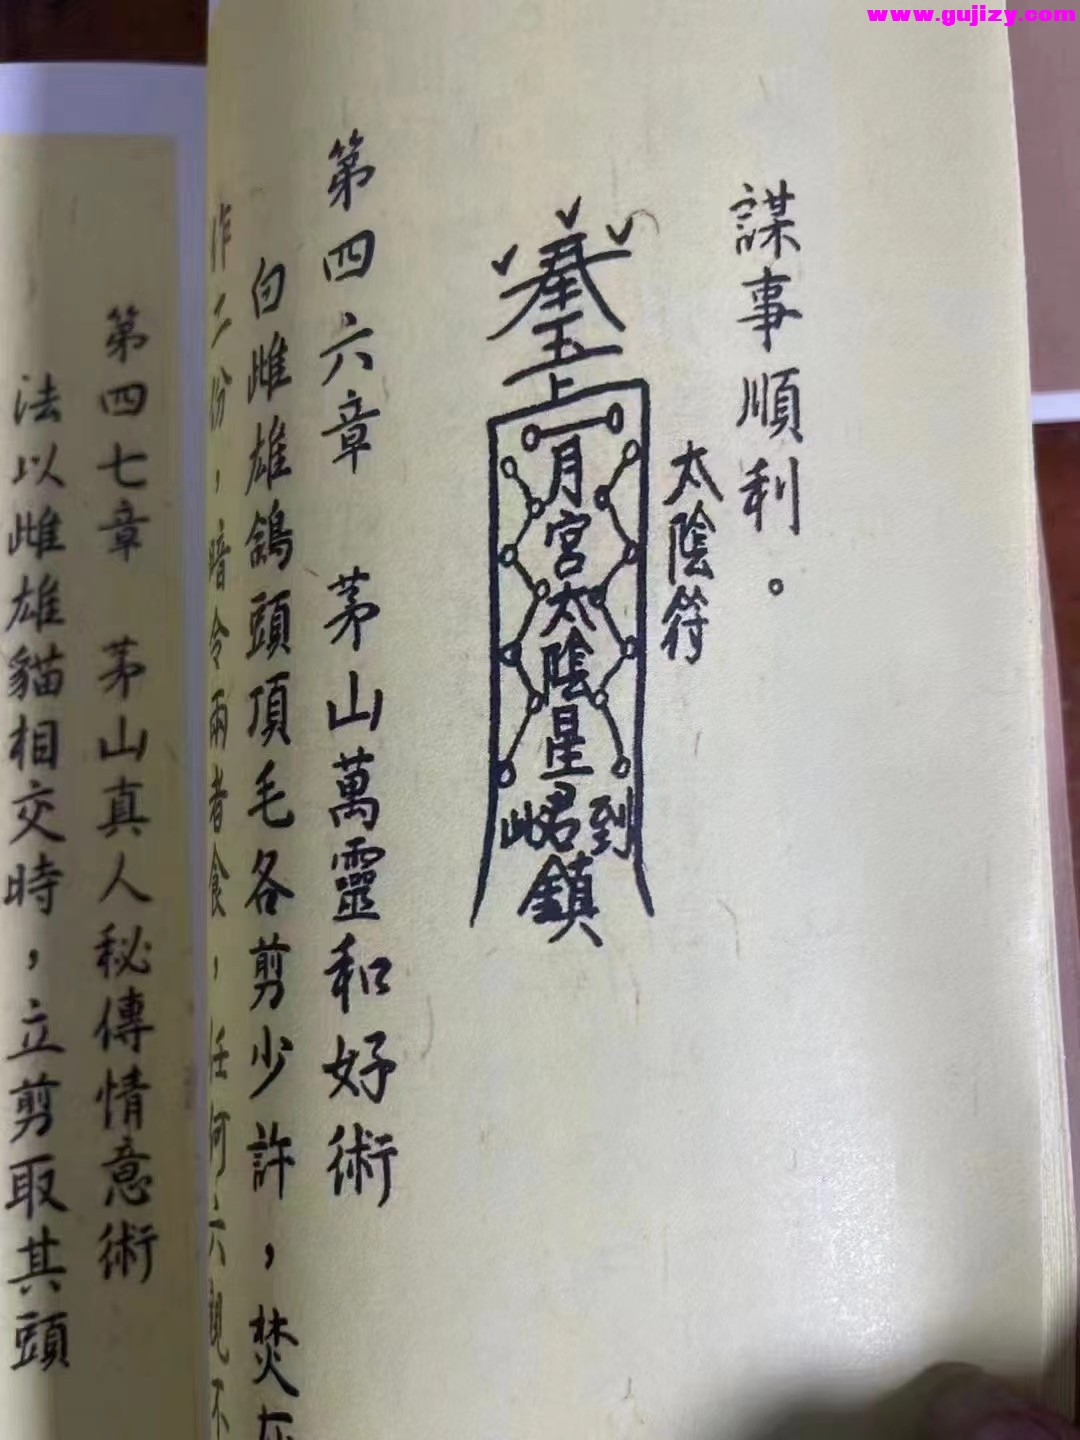 www.gujizy.com
謀事順利。
太陰符
奉玉上
月宮太陰星君到此鎮
第四六章　茅山萬靈和好術
白雌雄鴿頭頂毛各剪少許，焚灰
作二份，暗令兩者食，任何六親不
第四七章　茅山真人秘傳情意術
法以雌雄貓相交時，立剪取其頭